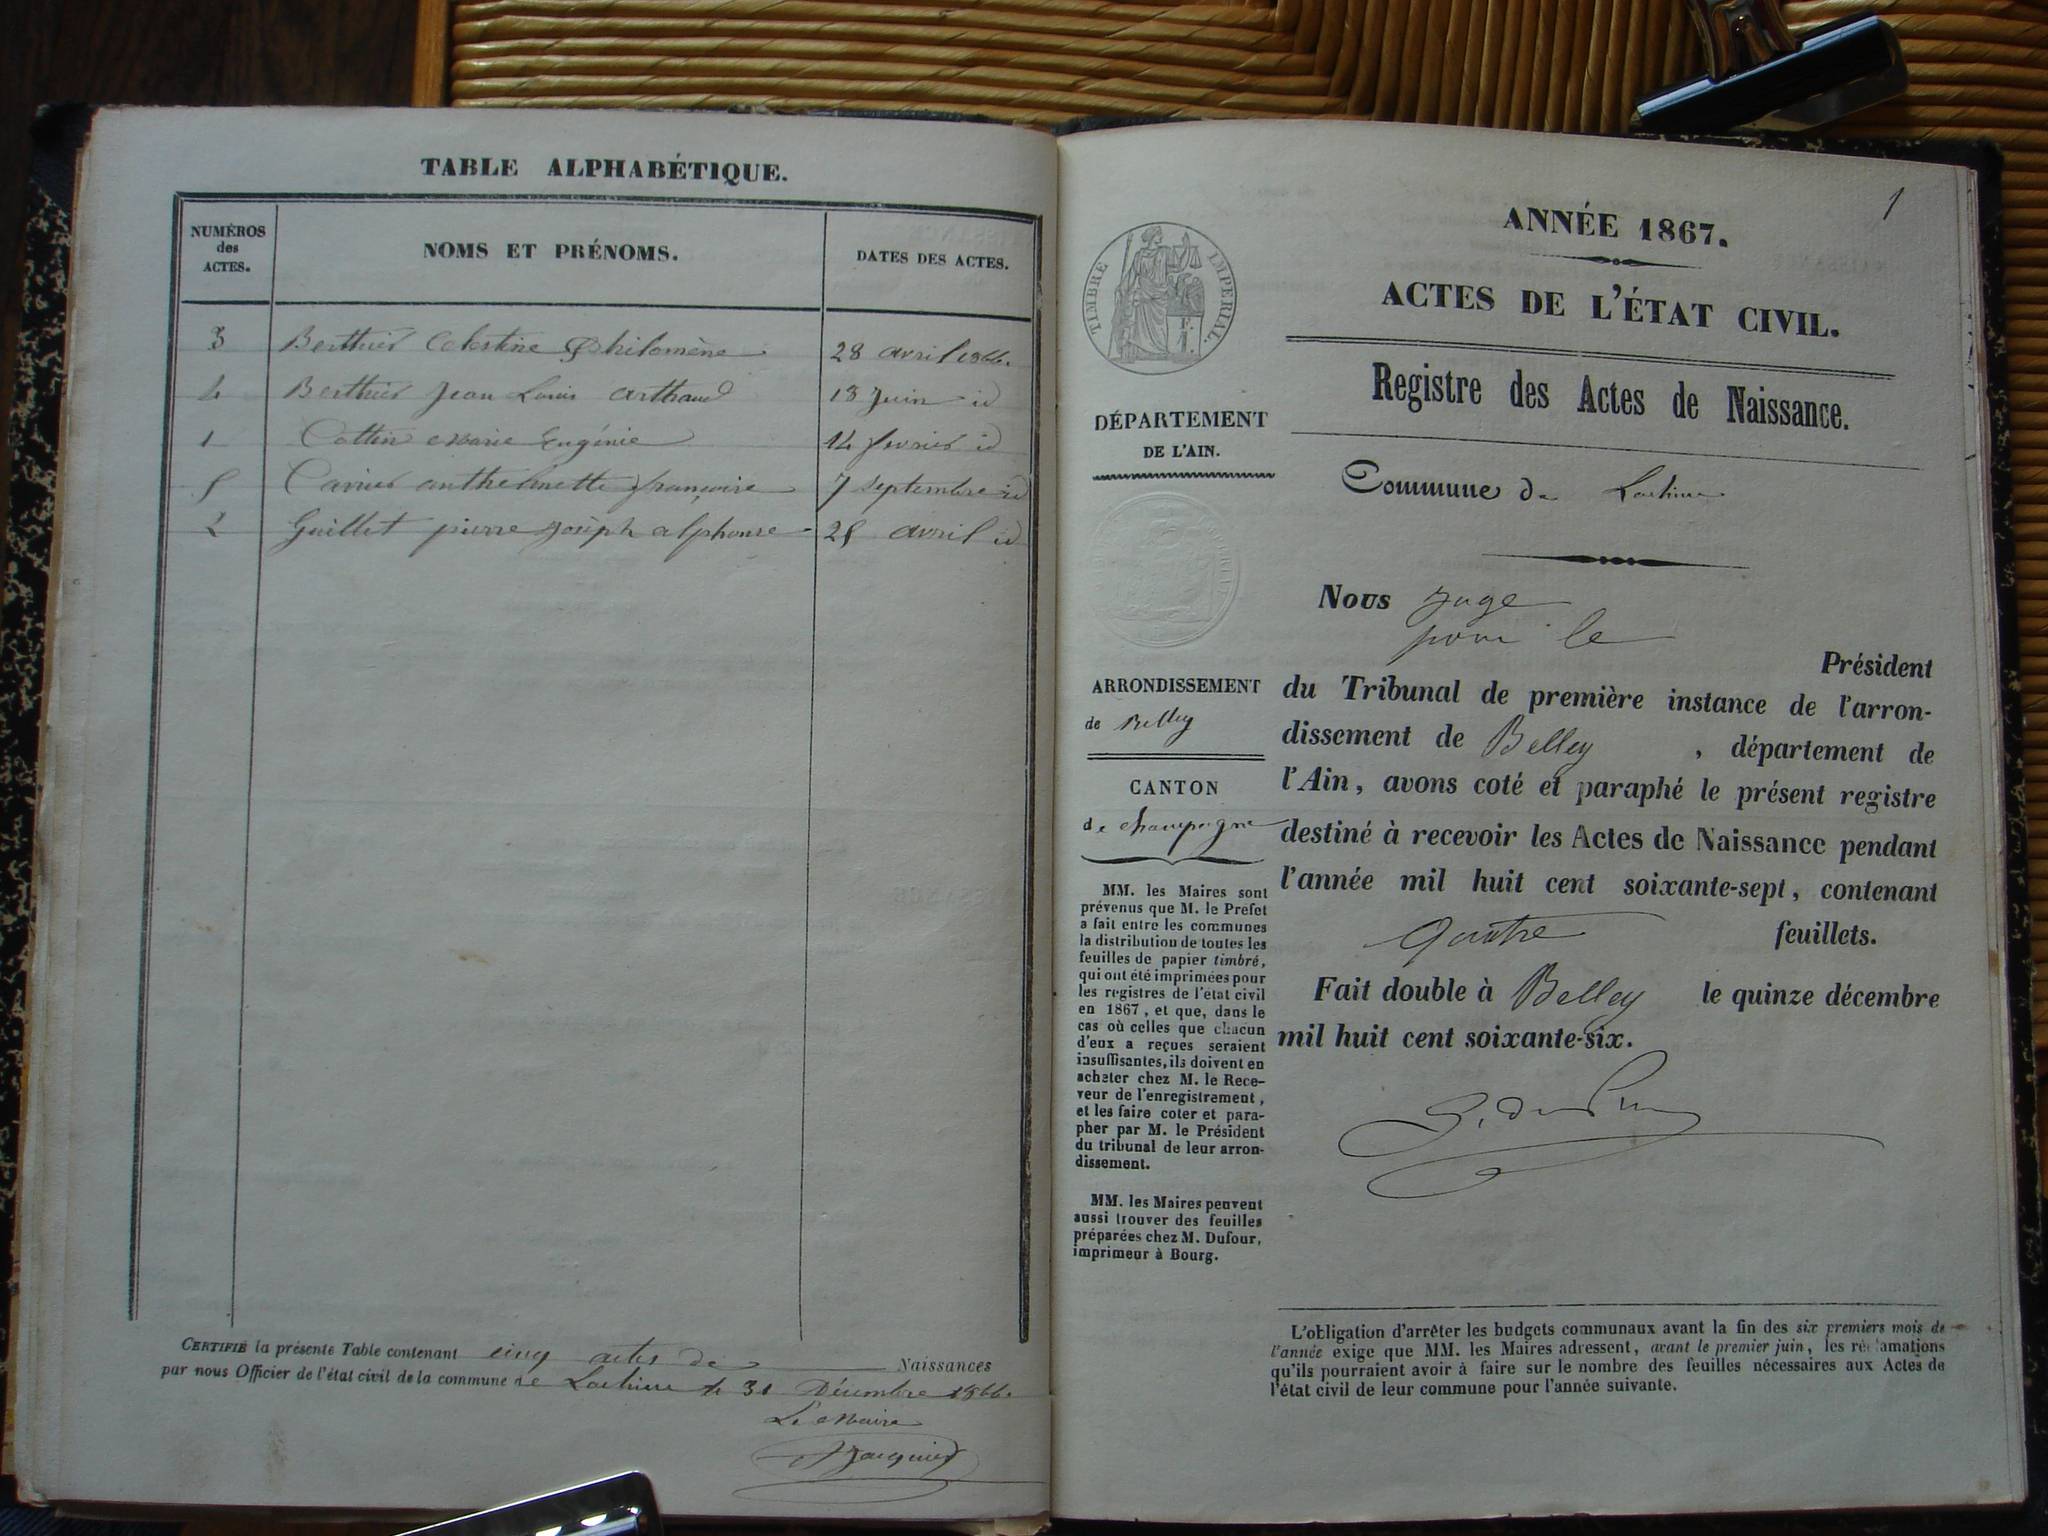 TABLE ALPHABÉTIQUE.
NUMÉROS des ACTES.
NOMS ET PRÉNOMS.
DATES DES ACTES.
3 Berthier Celestine Philomène 28 avril 1866.
4 Berthier Jean Louis Arthaud 18 Juin id
1 Cottin Marie Eugénie 14 fevrier id
5 anthelmette françoise 7 septembre id
2 Guillet pierre Joseph alphonse 25 avril id
CERTIFIÉ la présente Table contenant cinq actes de Naissances
par nous Officier de l'état civil de la commune de Lochieu le 31 Décembre 1866.
Le Maire
Jacquier
1
ANNÉE 1867.
ACTES DE L'ÉTAT CIVIL.
Registre des Actes de Naissance.
Commune de Lochieu
TIMBRE IMPÉRIAL.
DÉPARTEMENT
DE L'AIN.
ARRONDISSEMENT
de Belley
CANTON
de Champagne
MM. les Maires sont
prévenus que M. le Préfet
a fait entre les communes
la distribution de toutes les
feuilles de papier timbré,
qui ont été imprimées pour
les registres de l'état civil
en 1867, et que, dans le
cas où celles que chacun
d'eux a reçues seraient
insuffisantes, ils doivent en
acheter chez M. le Rece-
veur de l'enregistrement,
et les faire coter et para-
pher par M. le Président
du tribunal de leur arron-
dissement.
MM. les Maires peuvent
aussi trouver des feuilles
préparées chez M. Dufour,
imprimeur à Bourg.
Nous Juge
pour le
Président
du Tribunal de première instance de l'arron-
dissement de Belley , département de
l'Ain, avons coté et paraphé le présent registre
destiné à recevoir les Actes de Naissance pendant
l'année mil huit cent soixante-sept, contenant
quatre feuillets.
Fait double à Belley le quinze décembre
mil huit cent soixante-six.
L'obligation d'arrêter les budgets communaux avant la fin des six premiers mois de
l'année exige que MM. les Maires adressent, avant le premier juin, les réclamations
qu'ils pourraient avoir à faire sur le nombre des feuilles nécessaires aux Actes de
l'état civil de leur commune pour l'année suivante.